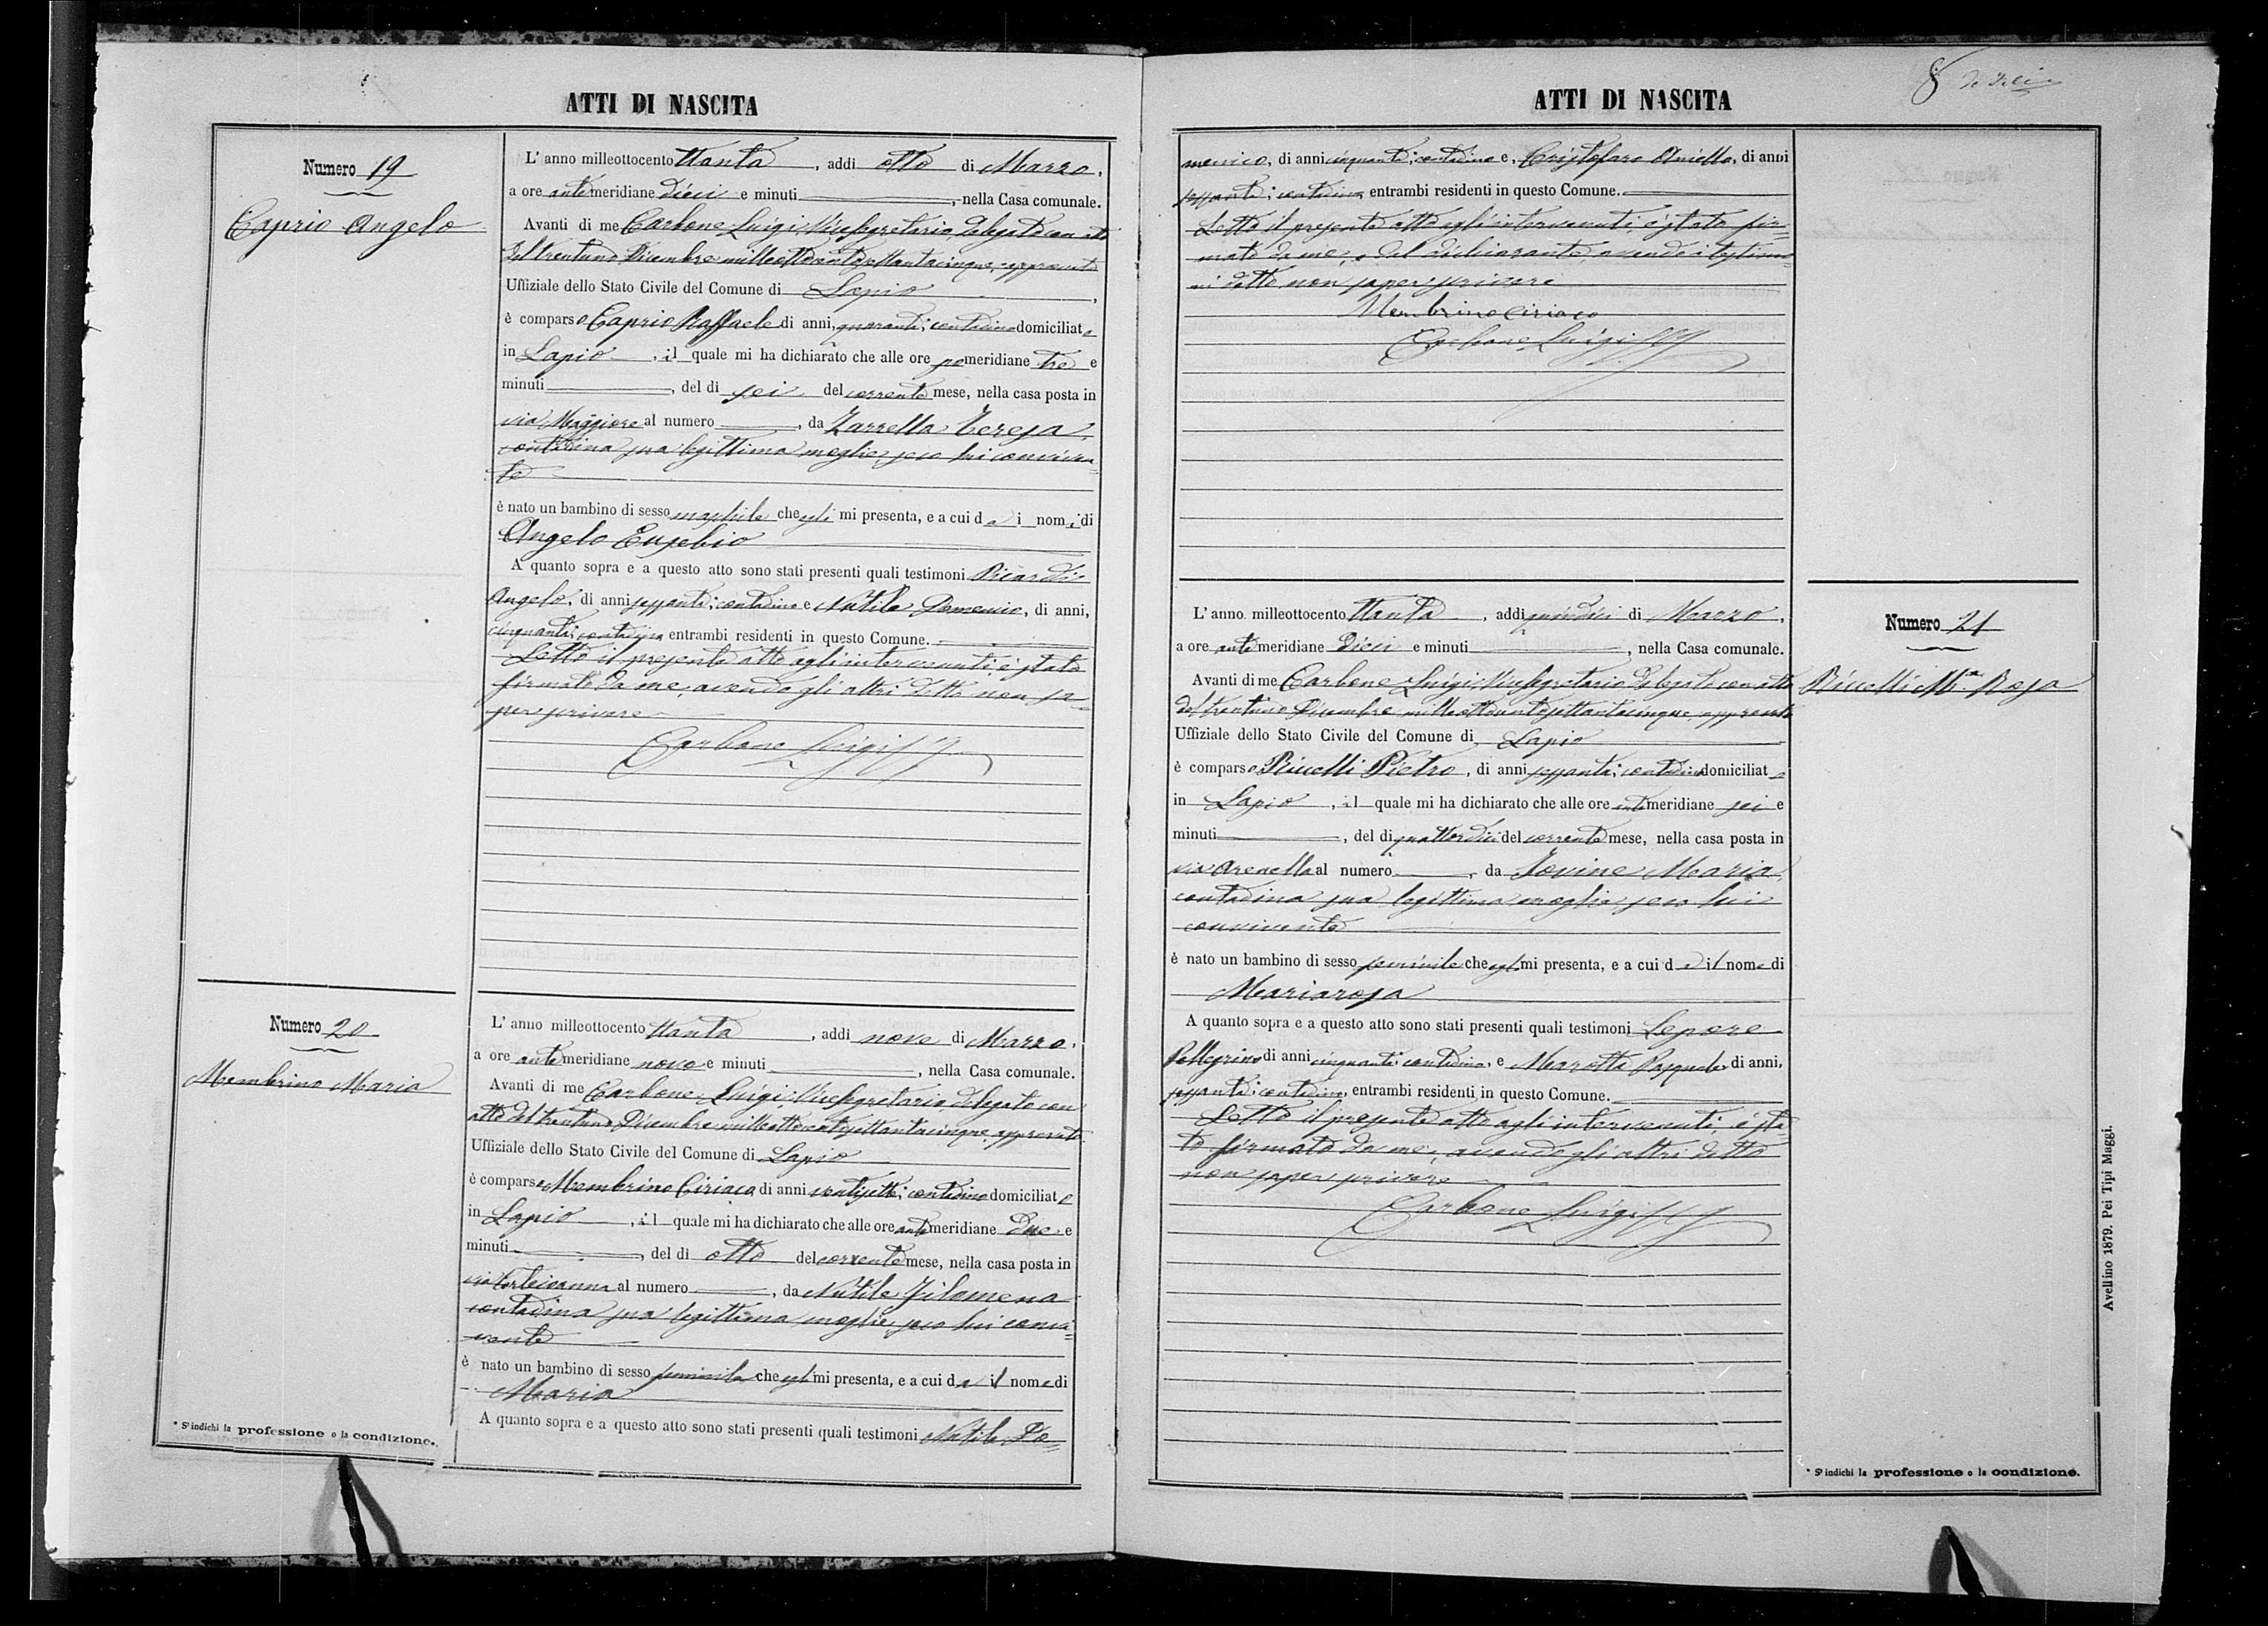 ATTI DI NASCITA
Numero 19
Caprio Angelo
L' anno milleottocento ttanta, addi otto di Marzo,
a ore antimeridiane dieci e minuti, nella Casa comunale.
Avanti di me Carbone Luigi Vicesegretario, delegato con atto
del trentuno Dicembre milleottocentosettantacinque, approvato
Uffiziale dello Stato Civile del Comune di Lapio,
è comparso Caprio Raffaele di anni, quaranta; contadino domiciliato
in Lapio, il quale mi ha dichiarato che alle ore pomeridiane tre e
minuti, del di sei del corrente mese, nella casa posta in
via Maggiore al numero, da Zarrella Teresa,
contadina sua legittima moglie, seco lui conviven=
te
è nato un bambino di sesso maschile che egli mi presenta, e a cui da i nomi di
Angelo Eusebio
A quanto sopra e a questo atto sono stati presenti quali testimoni Picardi
Angelo, di anni sessanta; contadino e Nutile Domenico, di anni,
cinquanta; contadino entrambi residenti in questo Comune.
Letto il presente atto agli intervenuti, è stato
firmato da me, avendo gli altri detto non sa=
per scrivere
Carbone Luigi
Numero 20
Membrino Maria
L' anno milleottocento ttanta, addi nove di Marzo,
a ore antimeridiane nove e minuti, nella Casa comunale.
Avanti di me Carbone Luigi, Vicesegretario, delegato con
atto del trentuno Dicembre milleottocentosettantacinque, approvato.
Uffiziale dello Stato Civile del Comune di Lapio
è comparso Membrino Ciriaco, di anni ventisette; contadino domiciliato
in Lapio, il quale mi ha dichiarato che alle ore antimeridiane due e
minuti, del di otto del corrente mese, nella casa posta in
via al numero, da Nutile Filomena
contadina sua legittima moglie, seco lui convi=
vente
è nato un bambino di sesso femminile che egli mi presenta, e a cui da il nome di
Maria
A quanto sopra e a questo atto sono stati presenti quali testimoni Nutile Do=
* S'indichi la professione o la condizione.
8
ATTI DI NASCITA
menico, di anni cinquanta; contadino e, Cristofaro Aniello, di anni
sessanta; contadino entrambi residenti in questo Comune.
Letto il presente atto agli intervenuti, è stato fir=
mato da me, e dal dichiarante, avendo i testimo=
ni detto non saper scrivere
Membrino Ciriaco
Carbone Luigi
Numero 21
Riccelli Mª Rosa
L' anno milleottocento ttanta, addi quindici di Marzo,
a ore antimeridiane dieci e minuti, nella Casa comunale.
Avanti di me Carbone Luigi, Vicesegretario delegato con atto
del trentuno Dicembre milleottocentosettantacinque, approvato
Uffiziale dello Stato Civile del Comune di Lapio
è comparso Riccelli Pietro, di anni sessanta; contadino domiciliato
in Lapio, il quale mi ha dichiarato che alle ore antimeridiane sei e
minuti, del di quattordici del corrente mese, nella casa posta in
via Arenella al numero, da Iovine Maria,
contadina sua legittima moglie, seco lui
convivente
è nato un bambino di sesso femminile che egli mi presenta, e a cui da il nome di
Mariarosa
A quanto sopra e a questo atto sono stati presenti quali testimoni Lepore
Pellegrino di anni cinquanta; contadino, e Marotta Pasquale di anni,
sessanta; contadino, entrambi residenti in questo Comune.
Letto il presente atto agli intervenuti, è sta=
to firmato da me, avendo gli altri detto
non saper scrivere
Carbone Luigi
* S'indichi la professione o la condizione.
Avellino 1879. Pei Tipi Maggi.